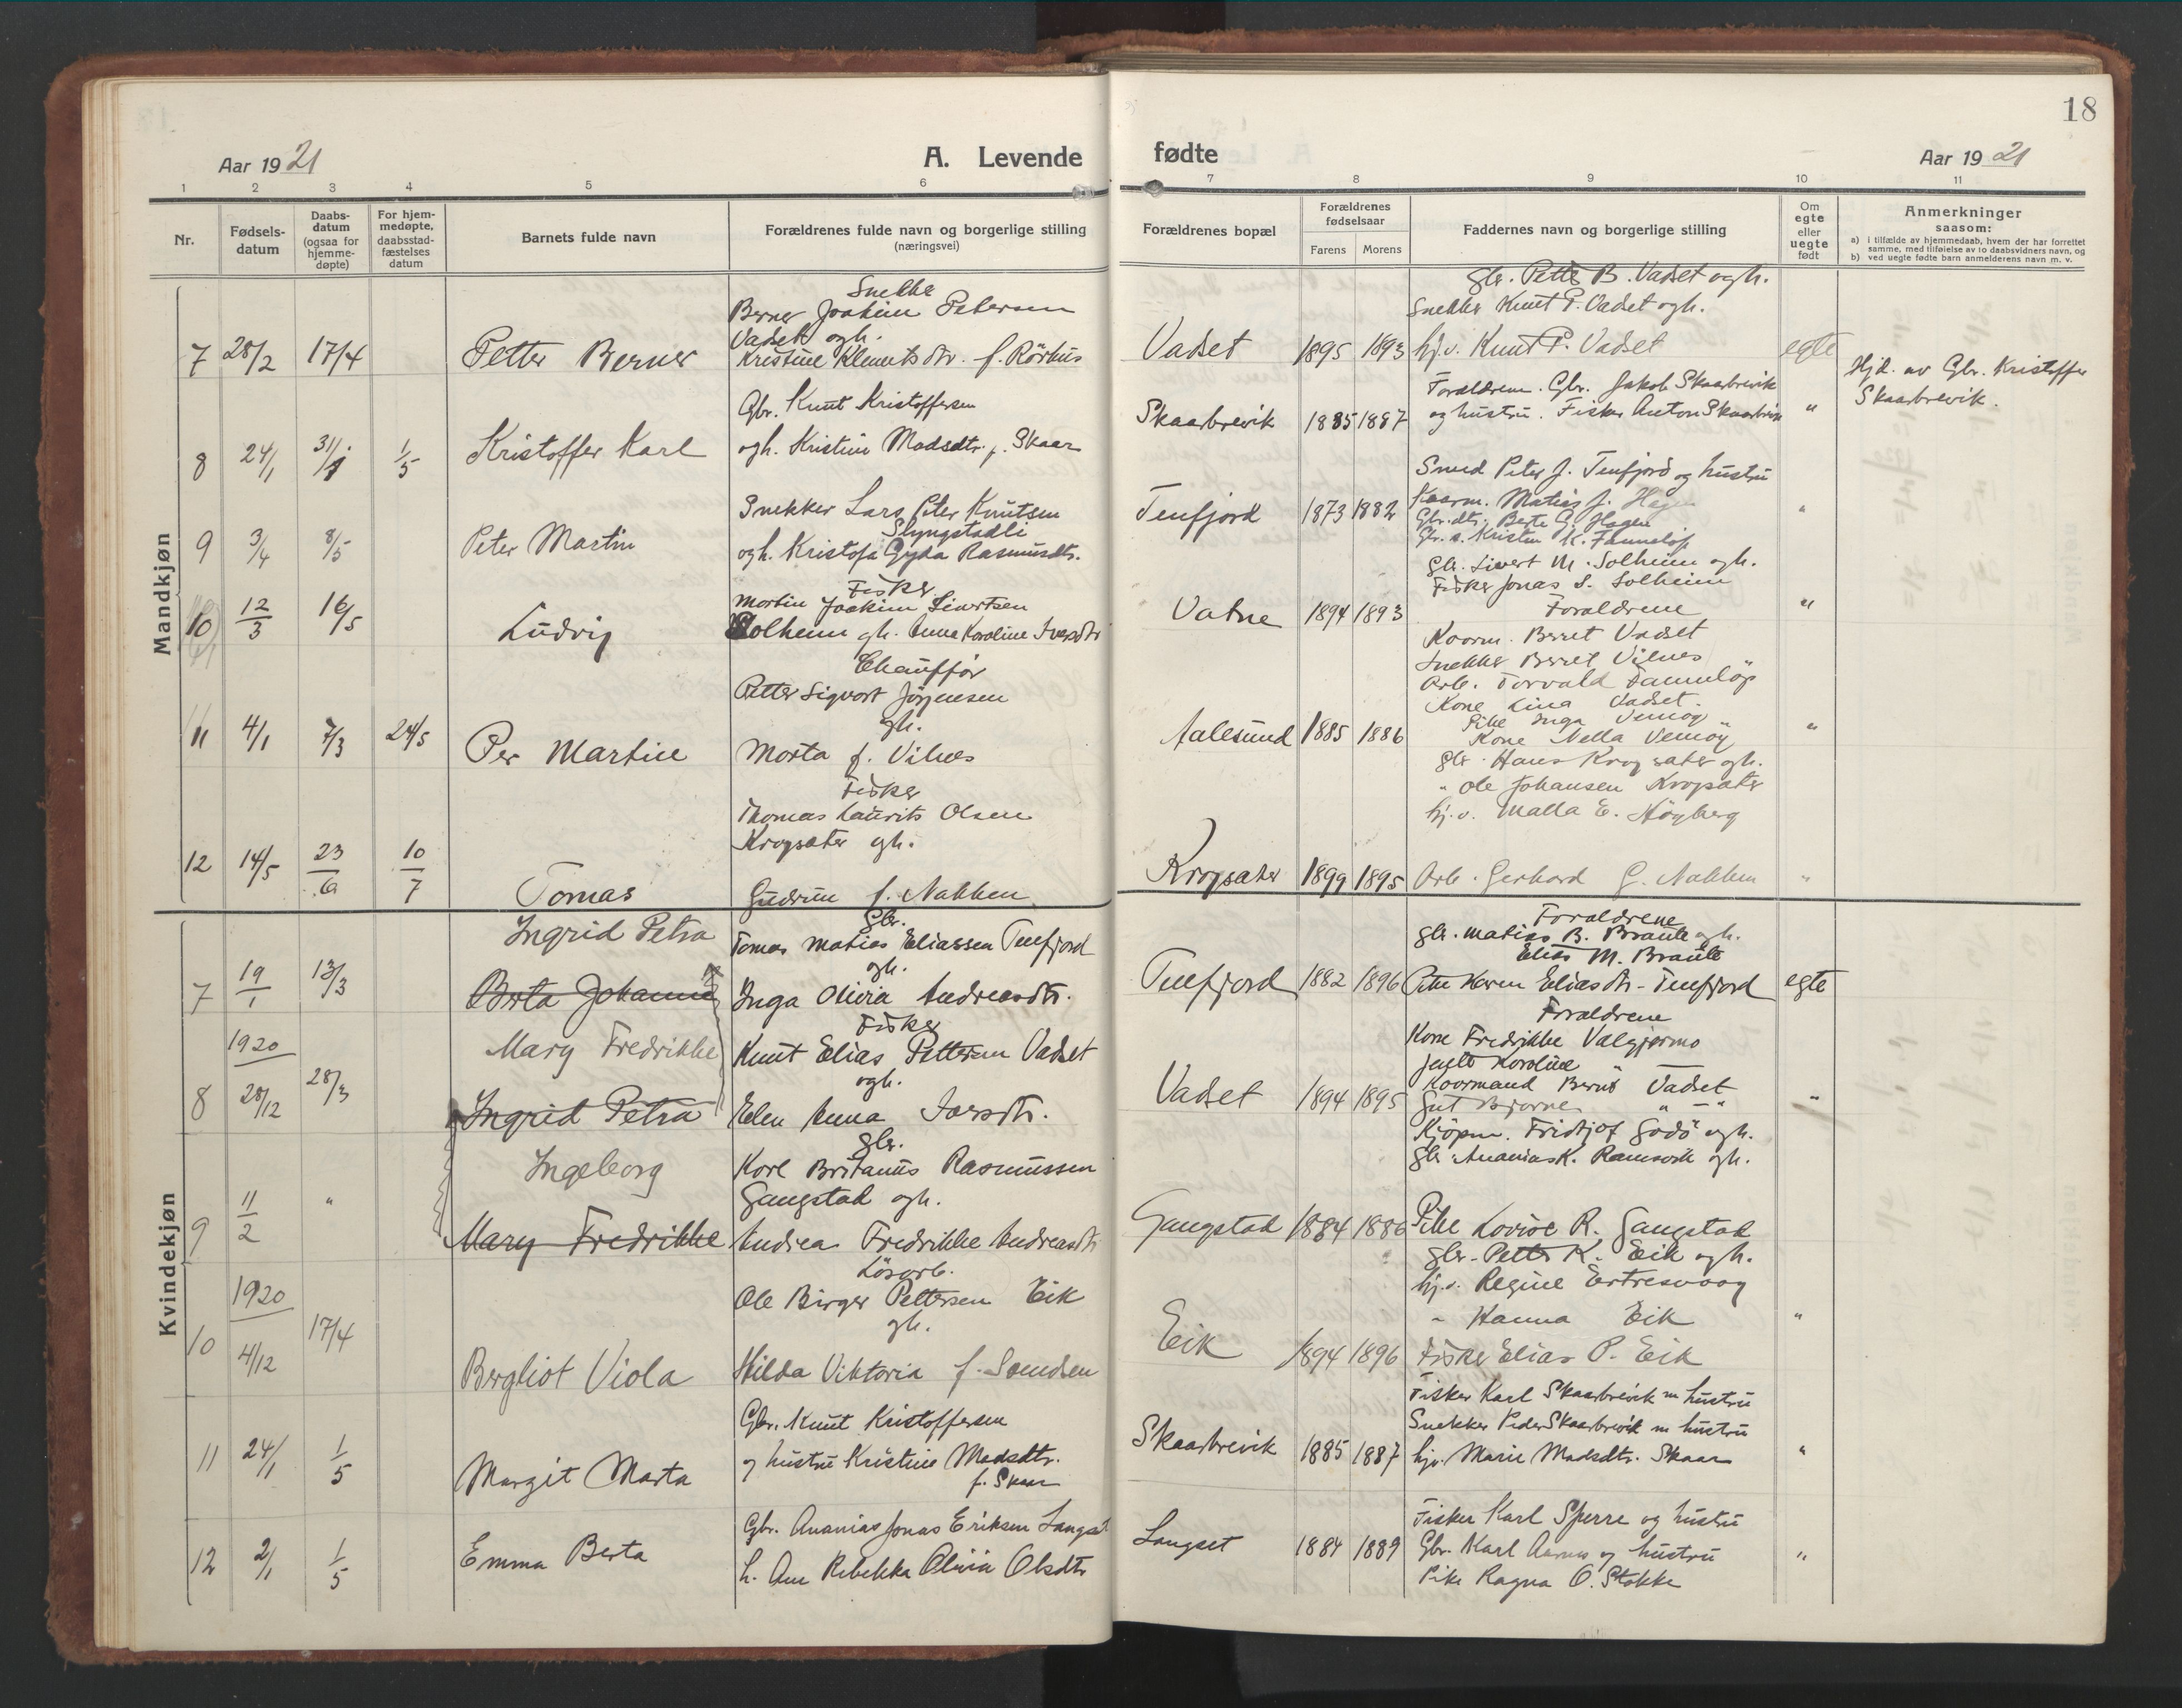 18
Aar 1921
A. Levende
fødte
Aar 1921
1 2 3 4 5 6 7 8 9 10 11
Nr.
Fødsels-
datum
Daabs-
datum
(ogsaa for
hjemme-
døpte)
For hjem-
medøpte,
daabsstad-
fæstelses
datum
Barnets fulde navn
Forældrenes fulde navn og borgerlige stilling
(næringsvei)
Forældrenes bopæl
Forældrenes
fødselsaar
Farens Morens
Faddernes navn og borgerlige stilling
Om
egte
eller
uegte
født
Anmerkninger
saasom:
a) i tilfælde av hjemmedaab, hvem der har forrettet
samme, med tilføielse av to daabsvidners navn, og
b) ved uegte fødte barn anmelderens navn m. v.
Mandkjøn
7 28/2 17/4 Petter Berner
Snekker
Berner Joakim Petersen
Vadset ogh.
Kristine Klemetsdtr. f. Rörhus
Vadset 1895 1893
Gbr. Petter B. Vadset ogh.
Snekker Knut P. Vadset ogh.
hj.v. Knut P. Vadset
egte
8 24/1 31/1 1/5 Kristoffer Karl
Gbr. Knut Kristoffersen
ogh. Kristine Madsdtr. f. Skaar
Skaarbrevik 1885 1887
Forældrene. Gbr. Jakob Skaarbrevik
og hustru. Fisker Anton Skaarbrevik
"
Hjd. av Gbr. Kristoffer
Skaarbrevik.
9 3/4 8/5 Peter Martin
Snekker Lars Peter Knutsen
Slyngstadli
ogh. Kristofa Gyda Rasmusdtr.
Tenfjord 1873 1882
Smed Peter J. Tenfjord og hustru
Kaarm. Matias J. Hagen
Gbr.dtr. Berte G. Hagen
Kristin K. Fanneløp
"
10 12/3 16/5 Ludvig
Fisker
Martin Joakim Sivertsen
Solheim gh. Anne Karoline Iversdtr
Vatne 1894 1893
Gbr. Sivert M. Solheim ogh.
Fisker Jonas S. Solheim
Forældrene
"
11 4/1 7/3 24/5 Per Martin
Chauffør
Petter Sigvart Jørgensen
gh.
Marta f. Vilnes
Aalesund 1885 1886
Kaarm. Berret Vadset
Snekker Berret Vilnes
Arb. Torvald Fanneløp
Kone Lina Vadset.
Pike Inga Vemøy
Kone Nella Vemøy
"
12 14/5 23/6 10/7 Tomas
Fisker
Thomas Laurits Olsen
Krogsæter gh.
Gudrun f. Nakken
Krogsæter 1899 1895
Gbr. Hans Krogsæter gh.
" Ole Johansen Krogsæter
hj.v. Malla E. Høyberg
Arb. Gerhard G. Nakken
"
Kvindekjøn
7 19/1 13/3 Ingrid Petra
Berta Johanne
Gbr.
Tomas Matias Eliassen Tenfjord
gh.
Inga Olivia Andreasdtr.
Tenfjord 1882 1896
Forældrene
Gbr. Matias B. Braute gh.
Elias M. Braute
Pike Karen Eliasdtr - Tenfjord
egte
8 1920 28/12 28/3 Mary Fredrikke
Ingrid Petra
Fisker
Knut Elias Pettersen Vadset
ogh.
Elen Anna Iversdtr.
Vadset 1894 1895
Forældrene
Kone Fredrikke Valgjermo
Karoline "
Kaarmand Bernt Vadset
Gut Bjarne " — "
"
9 11/2 " Ingeborg
Mary Fredrikke
Gbr.
Karl Britanus Rasmussen
Gangstad ogh.
Andrea Fredrikke Andreasdtr
Gangstad 1884 1886
Kjöpm. Fridtjof Godö ogh.
Gbr. Ananias K. Ramsvik gh.
Pike Lovise R. Gangstad
10 1920 4/12 17/4 Bergliot Viola
Lösarb.
Ole Birger Pettersen Eik
gh.
Hilda Viktoria f. Sandsen
Eik 1894 1896
Gbr. Petter K. Eik ogh.
hj.v. Regine Eertresvaag
" Hanna Eik
Fisker Elias P. Eik
"
11 24/1 1/5 Margit Marta
Gbr. Knut Kristoffersen
og hustru Kristine Madsdtr.
f. Skaar
Skaarbrevik 1885 1887
Fisker Karl Skaarbrevik m hustru
Snekker Peder Skaarbrevik m hustru
hjv. Marie Madsdtr. Skaar
"
12 2/1 1/5 Emma Berta
Gbr. Ananias Jonas Eriksen Langset
h. Ane Rebekka Olivia Olsdtr
Langset 1884 1889
Fisker Karl Sperre og hustru
Gbr. Karl Aarnes og hustru
Pike Ragna O. Stokke
"